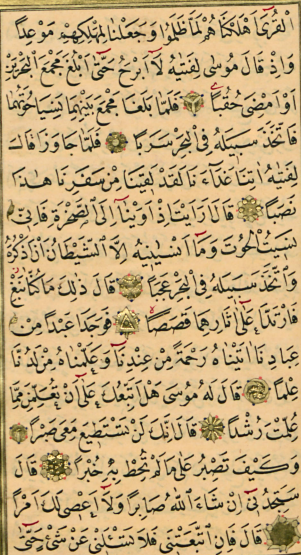 الْقُرٰٓى اَهْلَكْنَاهُمْ لَمَّا ظَلَمُوا وَجَعَلْنَا لِمَهْلِكِهِمْ مَوْعِدًا
وَاِذْ قَالَ مُوسٰى لِفَتٰيهُ لَٓا اَبْرَحُ حَتّٰٓى اَبْلُغَ مَجْمَعَ الْبَحْرَيْنِ
اَوْ اَمْضِىَ حُقُبًا فَلَمَّا بَلَغَا مَجْمَعَ بَيْنِهِمَا نَسِيَا حُوتَهُمَا
فَاتَّخَذَ سَبِيلَهُ فِى الْبَحْرِ سَرَبًا فَلَمَّا جَاوَزَا قَالَ
لِفَتٰيهُ اٰتِنَا غَدَٓاءَنَا لَقَدْ لَقِينَا مِنْ سَفَرِنَا هٰذَا
نَصَبًا قَالَ اَرَاَيْتَ اِذْ اَوَيْنَٓا اِلَى الصَّخْرَةِ فَاِنِّى
نَسِيتُ الْحُوتَ وَمَٓا اَنْسٰينِيهُ اِلَّا الشَّيْطَانُ اَنْ اَذْكُرَهُ
وَاتَّخَذَ سَبِيلَهُ فِى الْبَحْرِ عَجَبًا قَالَ ذٰلِكَ مَا كُنَّا نَبْغِ
فَارْتَدَّا عَلٰٓى اٰثَارِهِمَا قَصَصًا فَوَجَدَا عَبْدًا مِنْ
عِبَادِنَٓا اٰتَيْنَاهُ رَحْمَةً مِنْ عِنْدِنَا وَعَلَّمْنَاهُ مِنْ لَدُنَّا
عِلْمًا قَالَ لَهُ مُوسٰى هَلْ اَتَّبِعُكَ عَلٰٓى اَنْ تُعَلِّمَنِ مِمَّا
عُلِّمْتَ رُشْدًا قَالَ اِنَّكَ لَنْ تَسْتَطِيعَ مَعِىَ صَبْرًا
وَكَيْفَ تَصْبِرُ عَلٰى مَا لَمْ تُحِطْ بِهِ خُبْرًا قَالَ
سَتَجِدُنِٓى اِنْ شَٓاءَ اللّٰهُ صَابِرًا وَلَٓا اَعْصِى لَكَ اَمْرًا
قَالَ فَاِنِ اتَّبَعْتَنِى فَلَا تَسْـَٔلْنِى عَنْ شَىْءٍ حَتّٰٓى